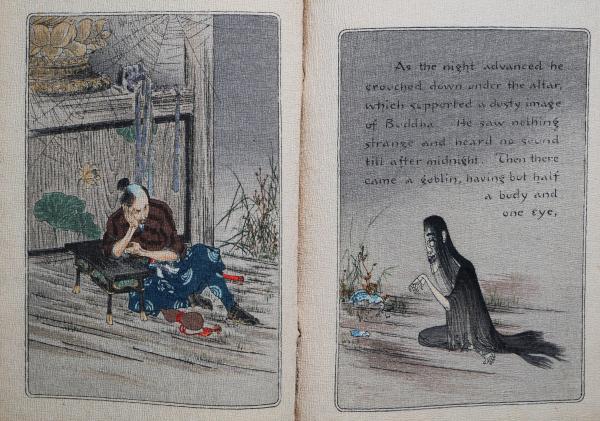 As the night advanced he
crouched down under the altar,
which supported a dusty image
of Buddha. He saw nothing
strange and heard no sound
till after midnight. Then there
came a goblin, having but half
a body and
one eye,